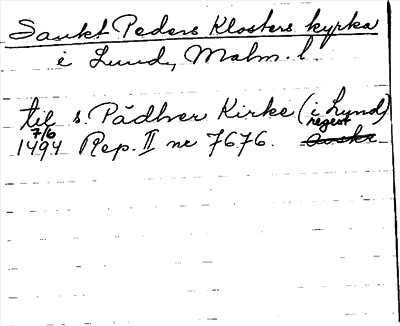 Sankt Peders Klosters kyrka
i Lund, Malm. l.
til s. Pädher Kirke (i Lund)
7/6 regest
1494 Rep. II nr 7676. avskr.